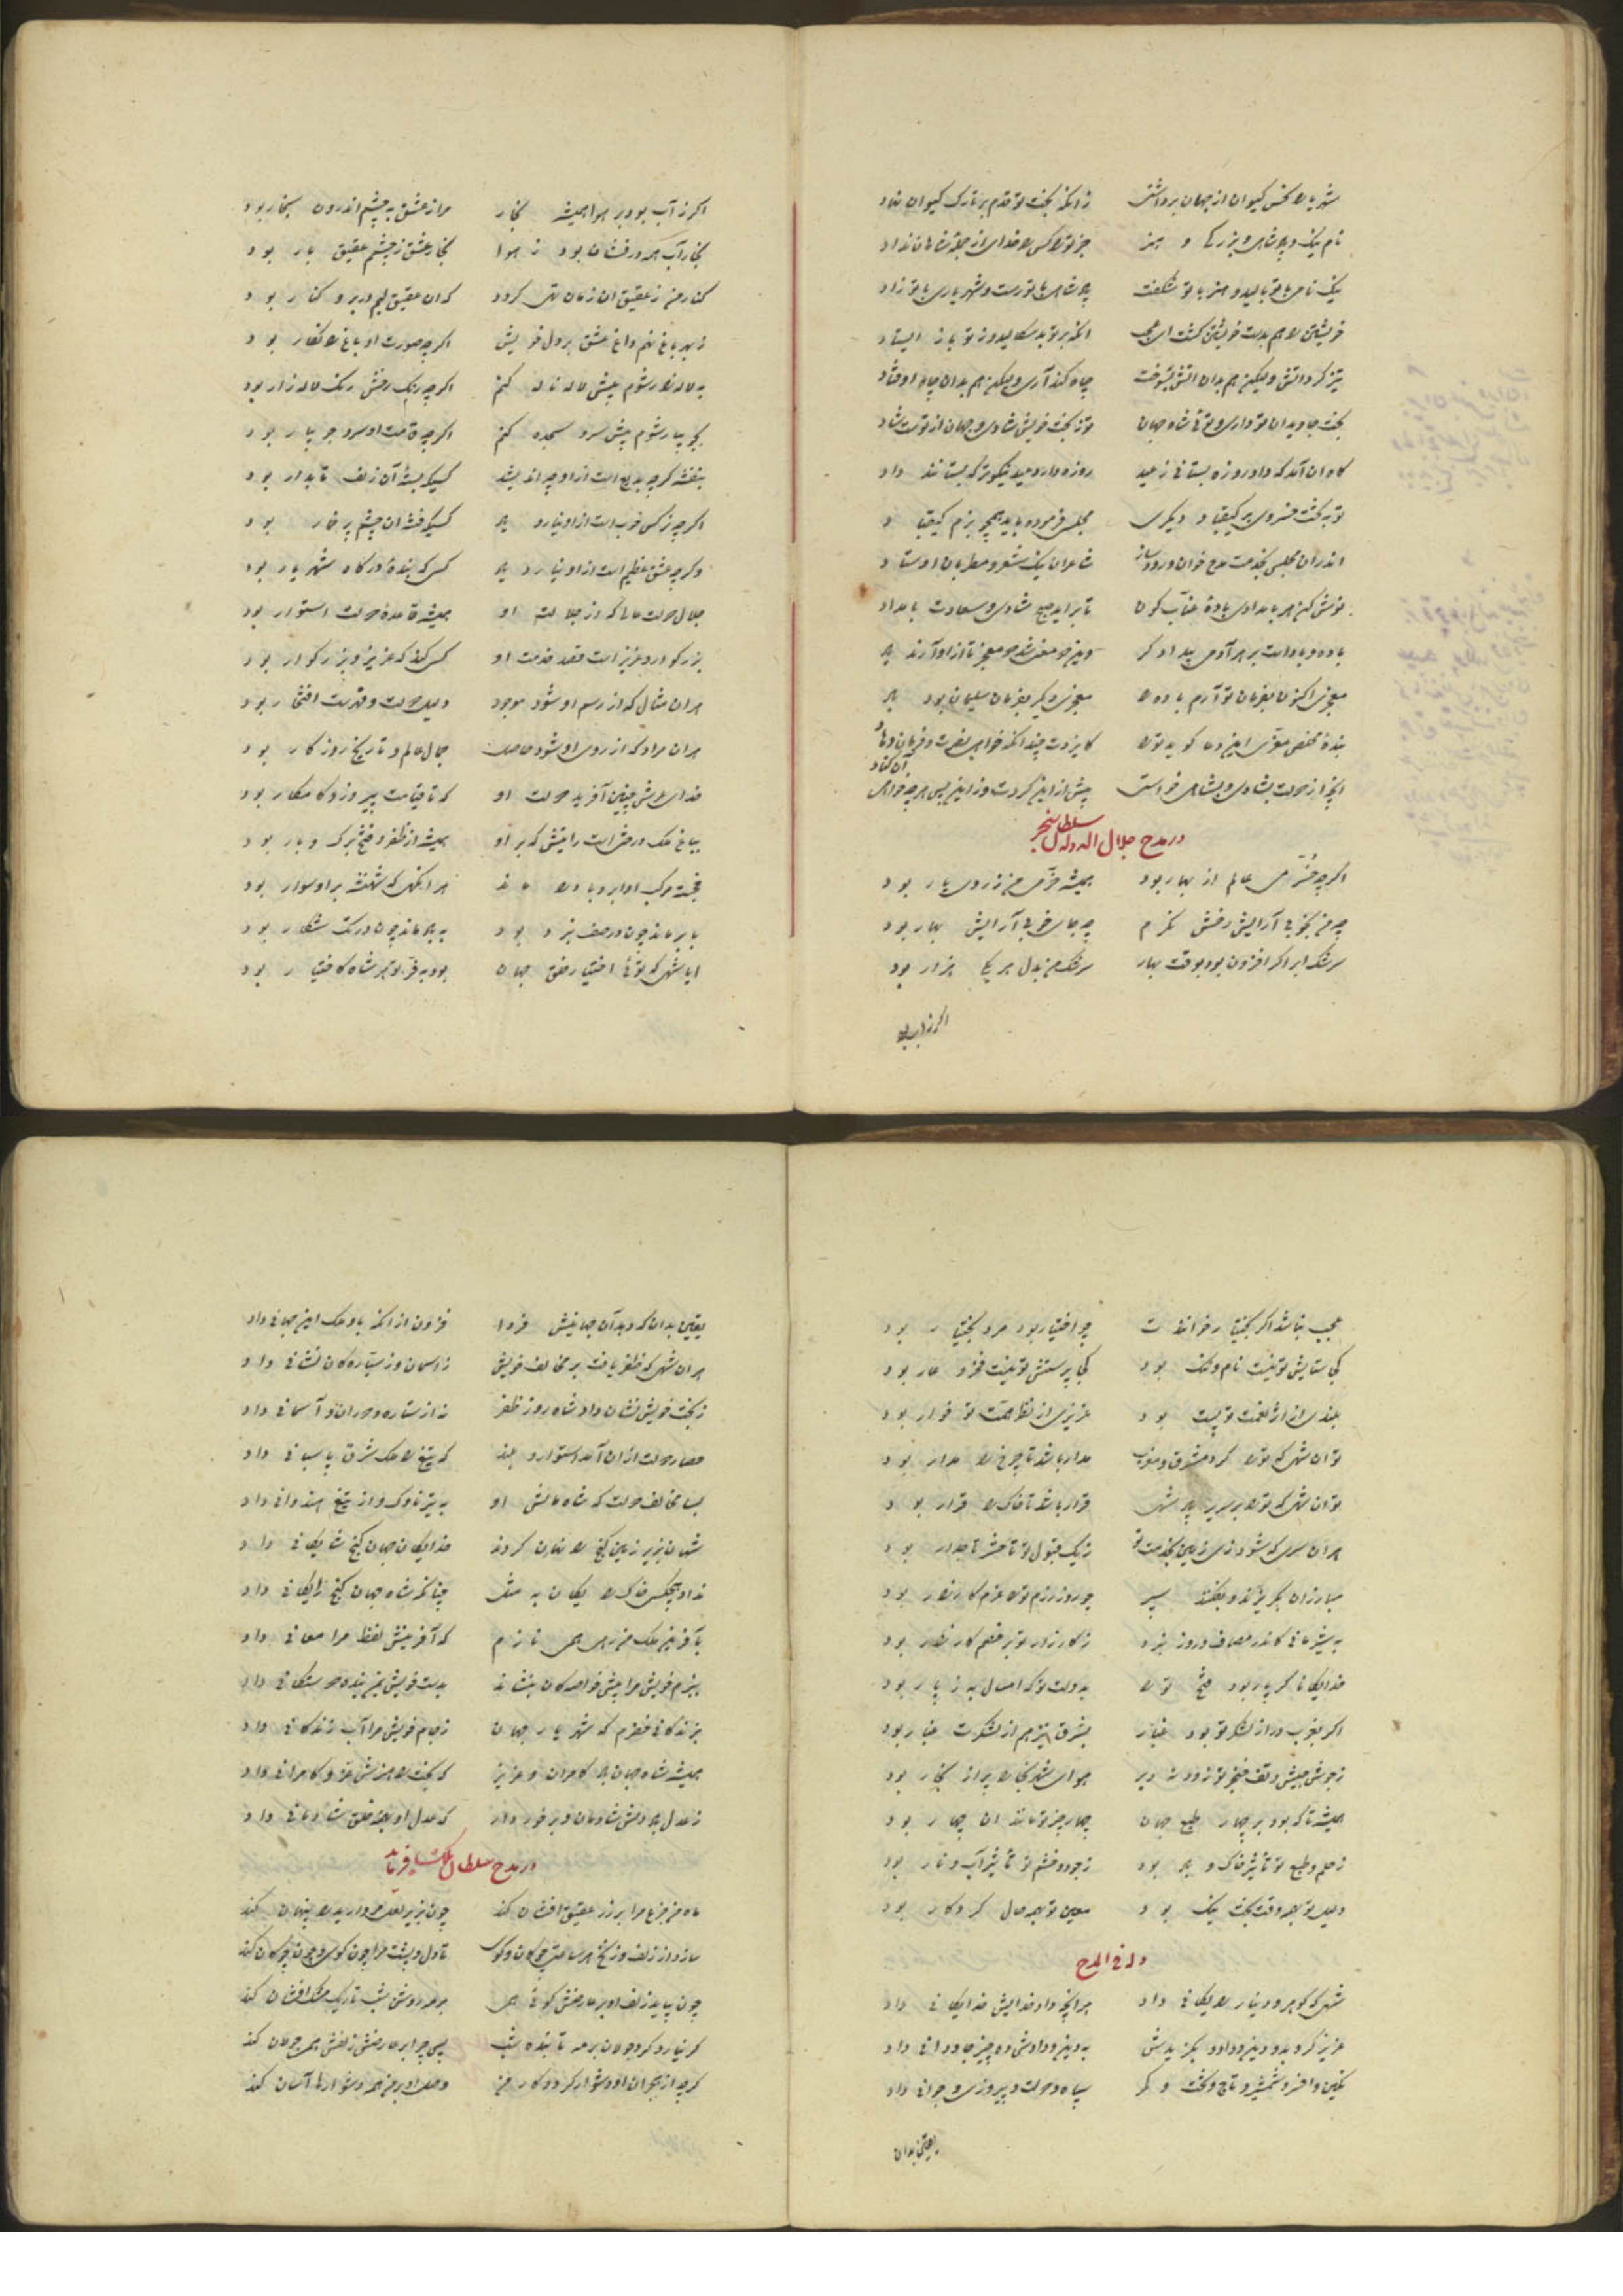 شهریارا نحس کیوان از جهان برداشتی زانکه بخت تو قدم بر تارک کیوان نهاد
نام نیک و پادشاهی و بزرگی و هنر جز تو را کس را خدای از جمله شاهان نداد
نیک نامی با تو بالید و هنر با تو شکفت پادشاهی با تو رست و شهریاری با تو زاد
خویشتن را هم بدست خویشتن کشت ای عجب انکه بر تو بد سکالید و ز تو باز ایستاد
تیز کرد آتش ولیکن هم بدان آتش بسوخت چاه کند آری ولیکن هم بدان چاه اوفتاد
بخت جاویدان تو داری و توئی شاه جهان تو ز بخت خویش شادی و جهان از تست شاد
گاه ان آمد که داد روزه بستانی ز عید روزه دارد عید نیکوتر که بستانند داد
تو به تخت خسروی بر کیقباد دیگری مجلس فرموده باید همچو بزم کیقباد
اندران مجلس بخدمت مدح خوان و رودساز شاعران نیک شعر و مطربان اوستاد
نوش کن هر بامدادی باده عناب کون تا براید صبح شادی و سعادت بامداد
معجزی اکنون بفرمان تو آرم باده را معجزی دیگر بفرمان سلیمان بود باد
بنده مخلص معزی این دعا کوید ترا کایزدت چندانکه خواهی نصرت و فیروزی دهاد
انچه از دولت بشادی و بشاهی خواستی پیش ازین کردت وز این پس هر چه خواهی آن کناد
در مدح جلال الدوله سلطان سنجر
اگرچه خرّمی عالم از بهار بود همیشه خرّمی من ز روی یار بود
چه من بخوبی آرایش رخش نگرم چه جای خوبی آرایش بهار بود
سرشک ابر اگر افزون بود بوقت بهار سرشک من بدل هر یکی هزار بود
اگر ز آب بود
اگر ز آب بود بر هوا همیشه بخار مرا ز عشق به چشم اندرون بخار بود
بخار آب همه در فشان بود ز هوا بخار عشق ز چشمم عقیق بار بود
کنار من ز عقیق ان زمان تهی کردد که ان عقیق لبم در بر و کنار بود
ز بهر باغ نهم داغ عشق بر دل خویش اگرچه صورت او باغ را نکار بود
به لاله زار شوم پیش لاله ناله کنم اگرچه رنگ رخش رنگ لاله زار بود
بجویبار شوم پیش سرو سجده کنم اگرچه قامت او سرو جویبار بود
بنفشه کرچه بدیع است ازو چه اندیشد کسیکه بسته آن زلف تابدار بود
اگرچه نرگس خوب است ازو نیارد یاد کسیکه فتنه ان چشم پر خمار بود
وگرچه عشق عظیم است ازو نیارد یاد کسی که بنده درگاه شهریار بود
جلال دولت عالی که از جلالت او همیشه قاعده دولت استوار بود
بزرگوار و عزیز است قصد خدمت او کسی کند که عزیز و بزرگوار بود
هر ان مثال که از رسم او شود موجود دلیل دولت و قدرت افتخار بود
هر ان مراد که از روی او شود حاصل جمال عالم و تاریخ روزگار بود
خدای عرش چنین آفرید دولت او که تا قیامت پیروز و کامکار بود
بباغ ملک درختی است رایتش که بر او همیشه از ظفر و فتح برگ و بار بود
خجسته مرکب او ابر و باد را ماند هر انگهی که شهنشه بر او سوار بود
بابر ماند چون در صف نبرد بود به باد ماند چون در تک شکار بود
ایا شهی که توئی اختیار خلق جهان بود به فرّ تو هر شاه کاختیار بود
عجب نباشد اگر بختیار خوانندت چو اختیار بود مرد بختیار بود
کجا ستایش تو نیست نام و ننگ بود کجا پرستش تو نیست فخر و عار بود
بلندی از اثر نعمت تو پست بود عزیزی از نظر همت تو خوار بود
تو ان شهی که تو را کرد مشرق و مغرب مدار باشد تا چرخ را مدار بود
تو ان شهی که تو را بر سریر پادشهی قرار باشد تا خاک را قرار بود
هر ان سری که شود زی زمین بخدمت تو ز نیک قبول تو تا حشر تاجدار بود
مبارزان بگریزند و بفکنند سپر چو روز رزم ترا عزم کارزار بود
به پیش مانی کاندر مصاف و روز نبرد ز کارزار تو بر خصم کارزار بود
خدایگانا گر پار بود فتح تو را بدولت تو که امسال به ز پار بود
اگر بغرب در از لشکر تو بود غبار بشرق نیز هم از لشکرت غبار بود
ز جوش جیش و تف خنجر تو زود نه دیر هوای شهر بخارا پر از بخار بود
همیشه تا که بود بر چهار طبع جهان چهار چیز تو مانند ان چهار بود
ز حلم و طبع تو تأثیر خاک و باد بود ز جود و خشم تو تأثیر آب و نار بود
دلیل تو همه وقت بخت نیک بود معین تو همه حال کردگار بود
وله فی المدح
شهی که گوهر و دینار رایگانی داد هر انچه داد خدایش خدایگانی داد
عزیز کرد بدو دین و داد و بگزیدش به دین و دادش ده چیز جاودانی داد
نگین و افسر و شمشیر و تاج و تخت و کمر سپاه و دولت و پیروزی و جوانی داد
یقین بدان
یقین بدان که دهد آن جهانیش فردا فزون از انکه باو ملک این جهانی داد
هر ان شهی که ظفر یافت بر مخالف خویش ز اسمان و ز سیّارگان نشانی داد
ز بخت خویش نشان داد شاه روز ظفر نه از ستاره و دوران و آسمانی داد
حصار دولت از ان آمد استوار و بلند که تیغ را ملک شرق پاسبانی داد
بسا مخالف دولت که شاه مالش او به تیر ناوک و از تیغ هندوانی داد
شهان بزیر زمین گنج را نهان کردند خدایگان جهان گنج شایگانی داد
نداد هیچکس خاک را یگان به مثل چنانکه شاه جهان گنج رایگانی داد
بآفرین ملک من رهی همی نازم که آفرینش لفظ مرا معانی داد
ببزم خویش مرا پیش خواجگان بنشاند بدست خویش بمن بنده دوستگانی داد
بزندگانی فخرم که شهریار جهان ز جام خویش مرا آب زندگانی داد
همیشه شاه جهان باد کامران و عزیز که بخت را هنرش عزّ و کامرانی داد
ز عدل باد دلش شادمان و برخوردار که عدل او بهمه خلق شادمانی داد
در مدح سلطان ملکشاه فرماید
ماه من جزع مرا بر زر عقیق افشان کند چون بزیر لعل مروارید را پنهان کند
سازد از زلف و زنخ هر ساعتی چوگان و گوی تا دل و پشت مرا چون گوی و چون چوگان کند
چون بپاید زلف او بر عارضش گوئی همی بر مه روشن شب تاریک مشک افشان کند
گر نیارد کرد جولان بر مه تابنده شب پس چرا بر عارضش زلفش همی جولان کند
گرچه از هجران او دشوار گردد کار من وصل او بر من همه دشوارها آسان کند